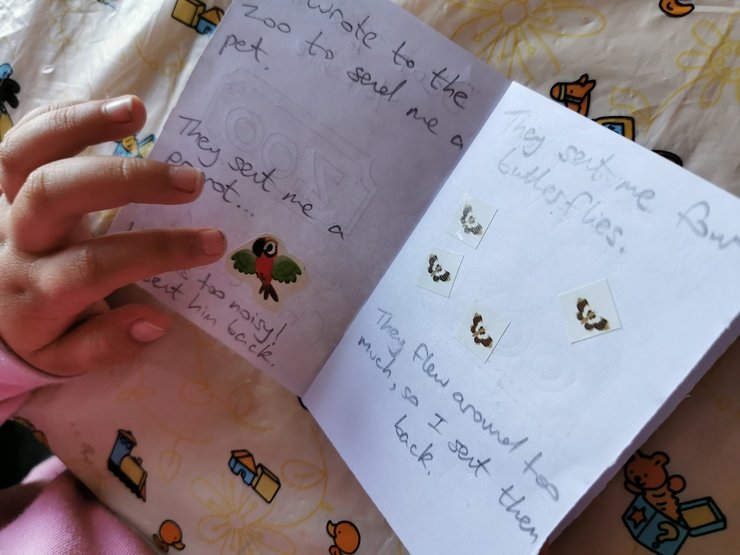 wrote to the
zoo to send me a
pet.
They sent me a
parrot...
too noisy!
sent him back.
They sent me four
butterflies.
They flew around too
much, so I sent them
back.
ZOO